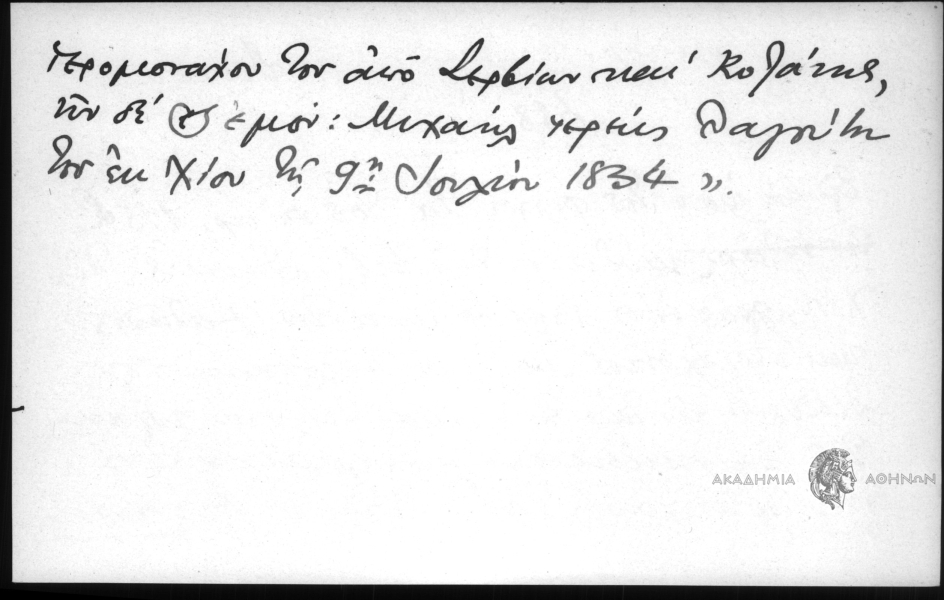 ἱερομονάχου τοῦ ἀπό Σερβίων καί Κοζάνης,
νῦν δέ ἐμοῦ: Μιχαήλ ἱερεύς
τοῦ ἐκ Χίου τῇ 9ῃ Ἰουλίου 1834 ».
ΑΚΑΔΗΜΙΑ ΑΘΗΝΩΝ